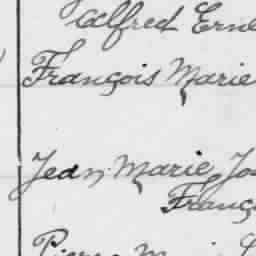 Alfred Erne
François Marie
Jean Marie Jos
Franç
Pierre M